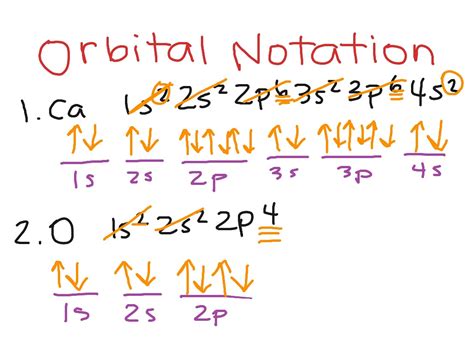 Orbital Notation
1. Ca 1s² 2s² 2p⁶ 3s² 3p⁶ 4s²
↑↓ ↑↓ ↑↓↑↓↑↓ ↑↓ ↑↓↑↓↑↓ ↑↓
1s 2s 2p 3s 3p 4s
2. O 1s² 2s² 2p⁴
↑↓ ↑↓ ↑↓↑↓
1s 2s 2p